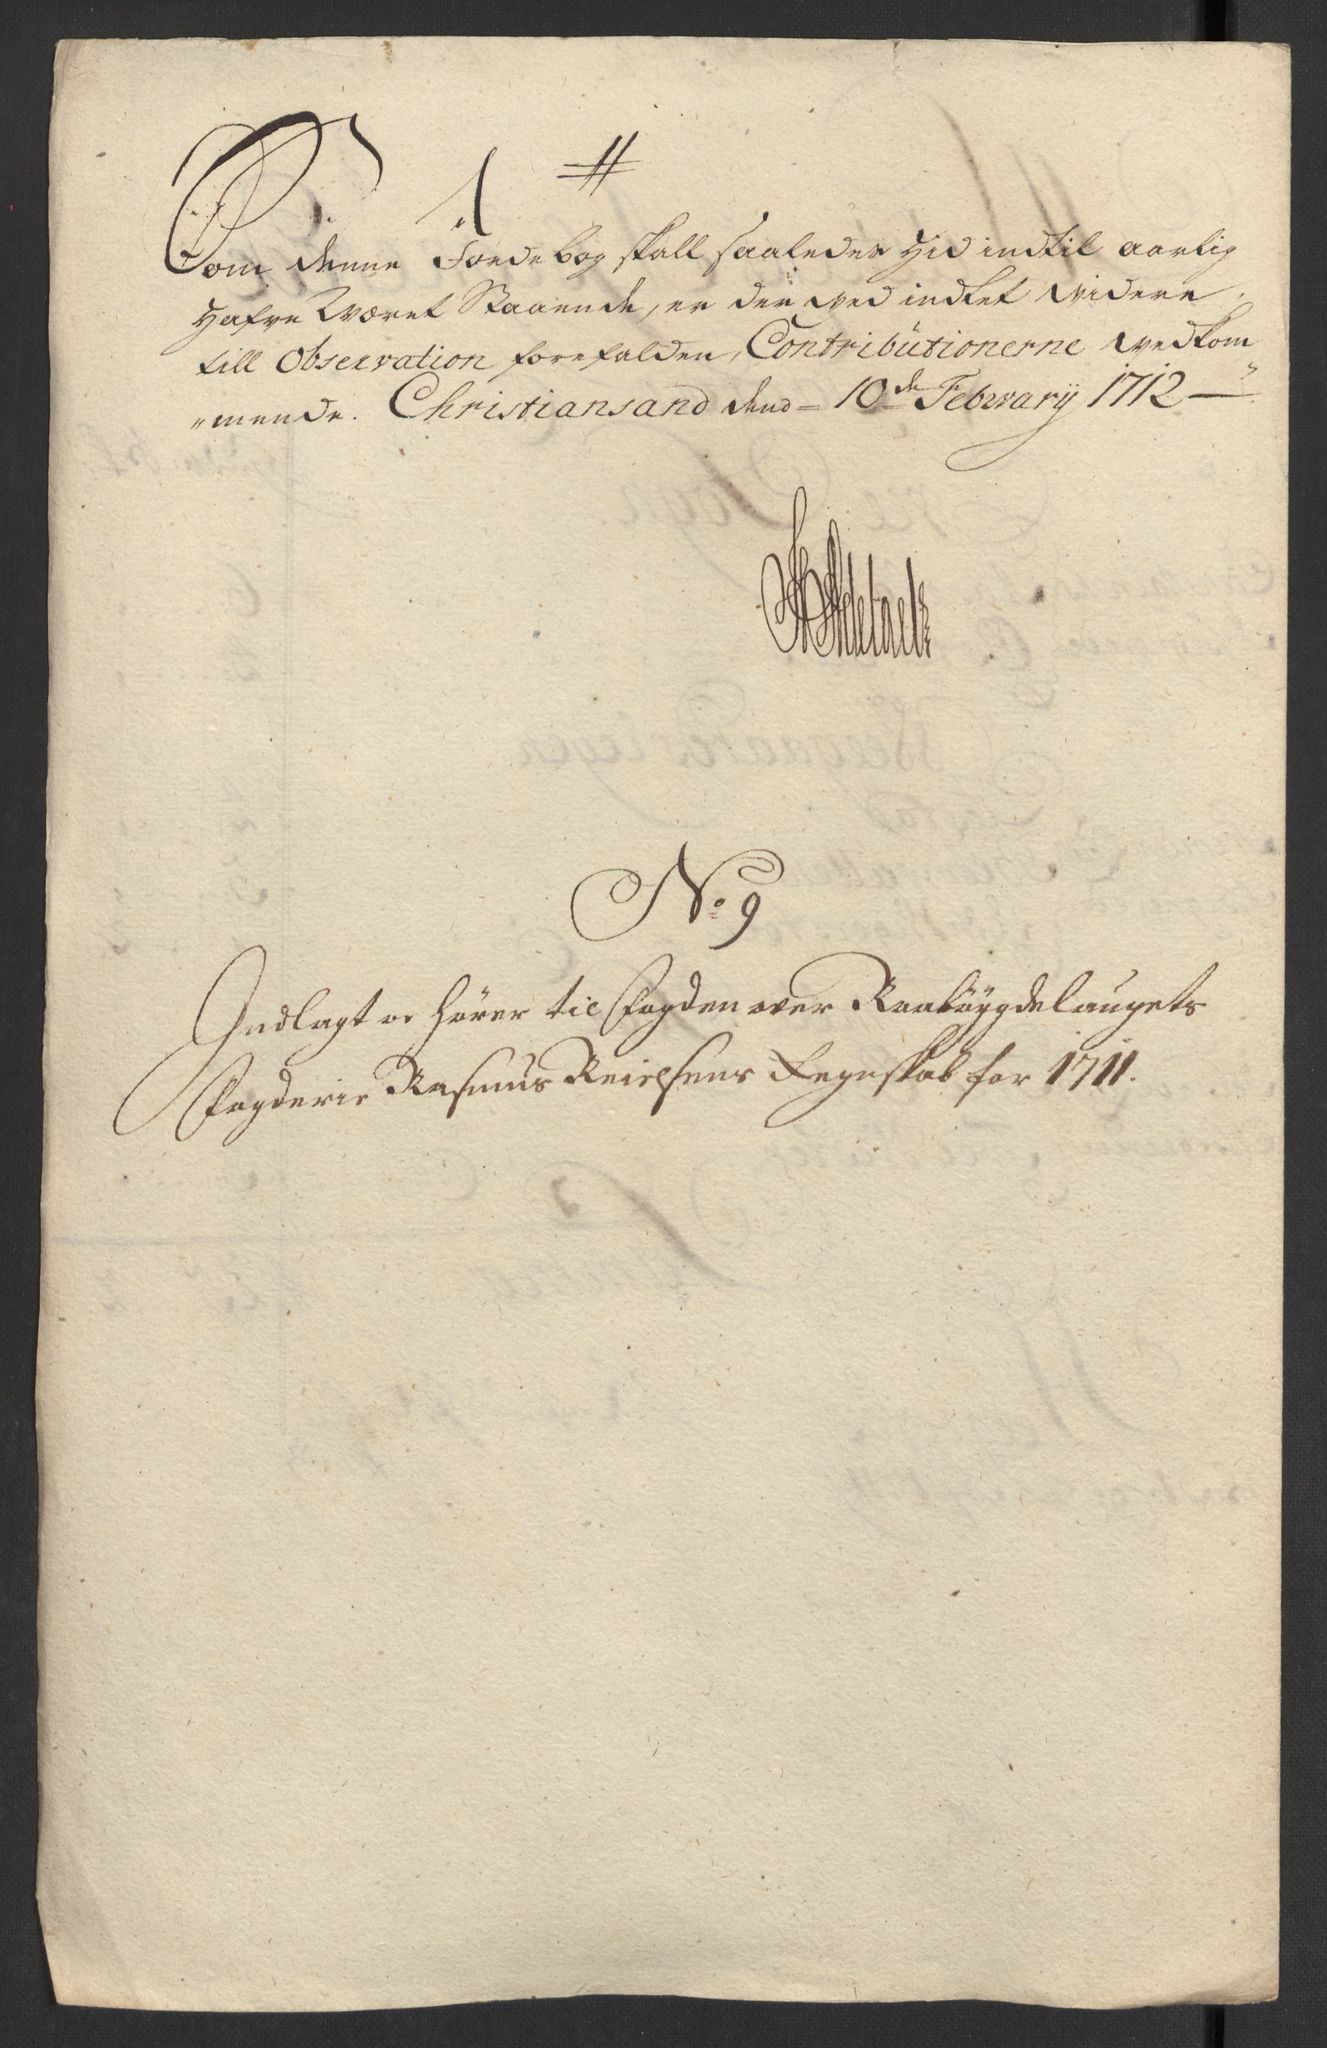 Som denne Jordebog skall saaledes hid indtil aarlig
hafve Været Staaende, er der ved indtet videre
till Observation forefalden, Contributionerne vedkom
"mende. Christiansand dend 10de Februarij 1712
No 9
Indlagt og hører til Fogden over Raabøygdelaugets
Fogderie Rasmus Reichsens Regnskab for 1711.